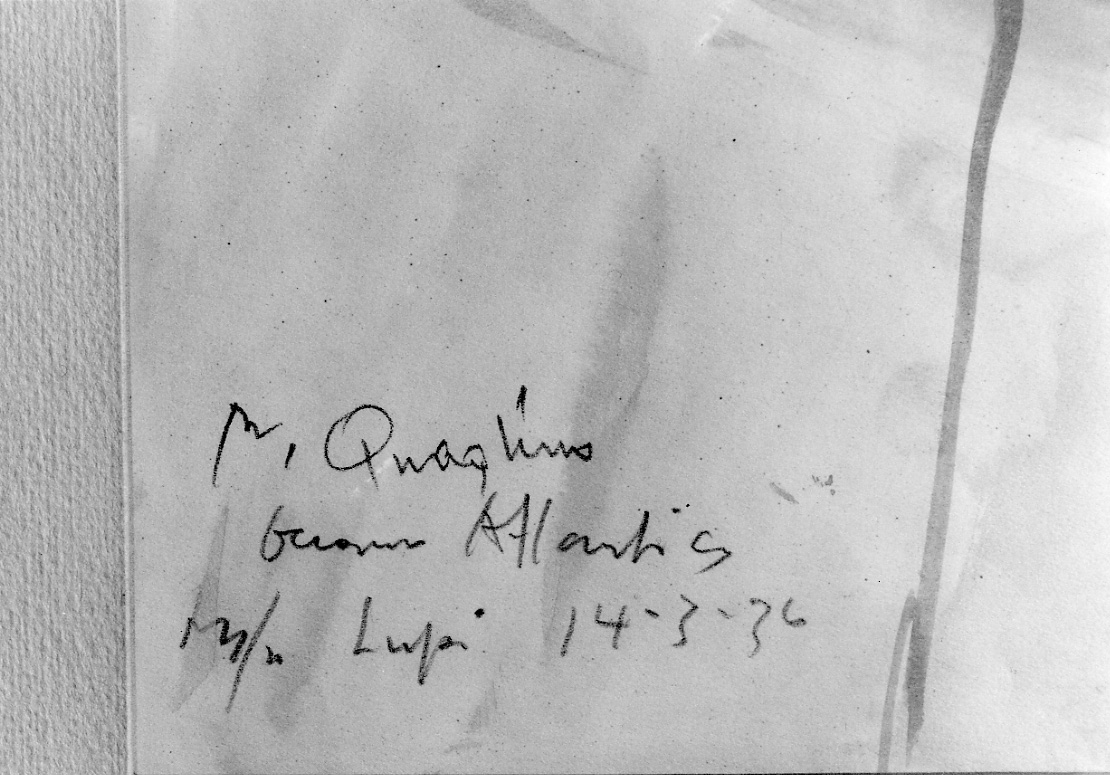 M. Quaglino
Oceano Atlantico
M/n Lupi 14-3-36